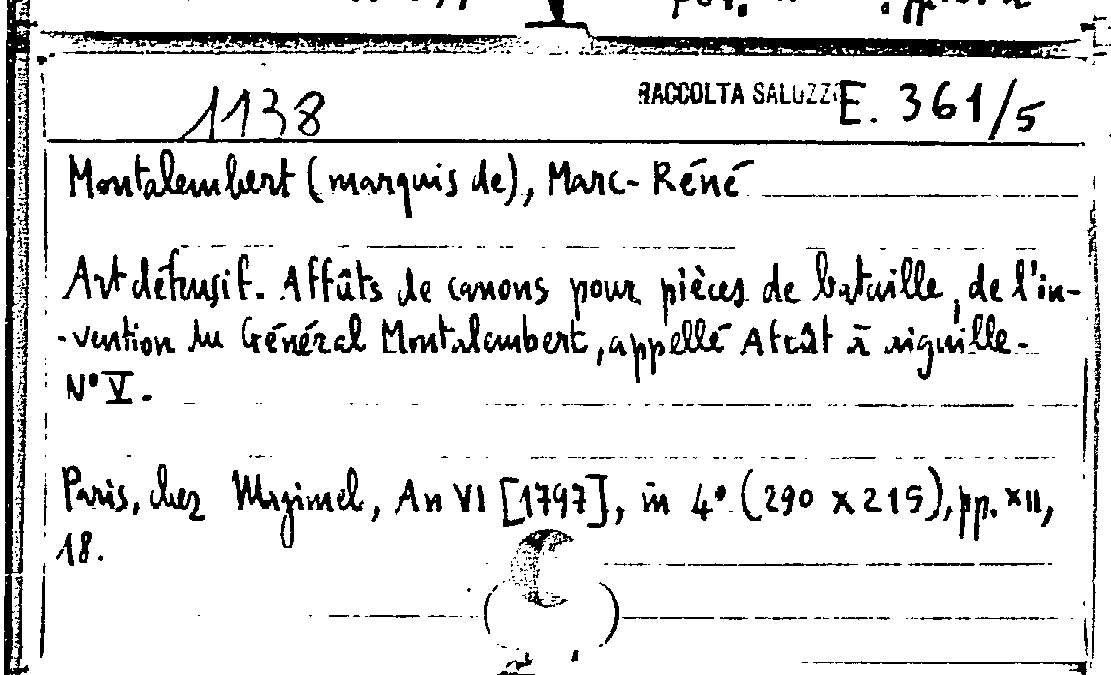 1138 RACCOLTA SALUZZO E. 361/5
Montalembert (marquis de), Marc-Réné
Art défensif. Affûts de canons pour pièces de bataille, de l'in-
-vention du Général Montalembert, appellé Affût à aiguille.
N° V.
Paris, chez Magimel, An VI [1797], in 4° (290 x 215), pp. XII,
18.